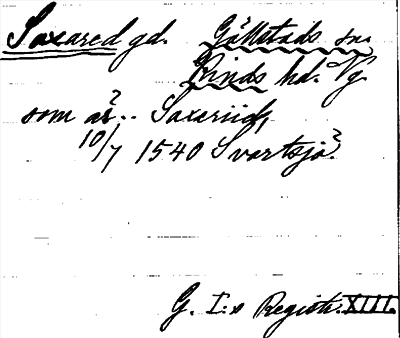 Saxared gd. Gällstads sn.
Kinds hd. Vg.
som är? .. Saxeriid,
10/7 1540 Svartsjö?
G. I:s Registr. XIII.